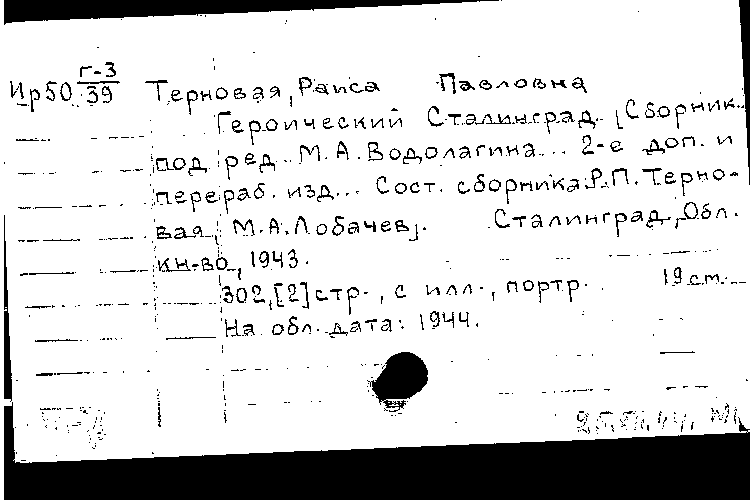 Ир50 Г-3/39 Терновая, Раиса Павловна
Героический Сталинград. [Сборник.
под ред. М.А.Водолагина... 2-е доп. и
перераб. изд... Сост. сборника:Р.П.Терно-
вая, М.А.Лобачев]. Сталинград, Обл.
кн-во, 1943.
302,[2]стр., с илл., портр. 19 см.
На обл. дата: 1944.